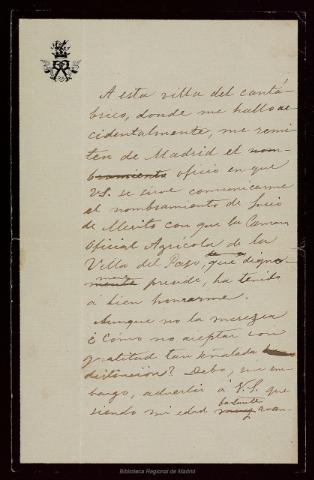 A esta villa del cantá-
brico, donde me hallo ac-
cidentalmente, me remi-
ten de Madrid el nom-
bramiento oficio en que
V.S. se sirve comunicarme
el nombramiento de Socio
de Mérito con que la Camara
Oficial Agrícola de la
Villa del Prado, que digna-
mente preside, ha tenido
á bien honrarme.
Aunque no la merezca
¿Cómo no aceptar con
gratitud tan señalada
distinción? Debo, sin em-
bargo, advertir á V.S. que
siendo mi edad bastante
muy avan-
Biblioteca Regional de Madrid